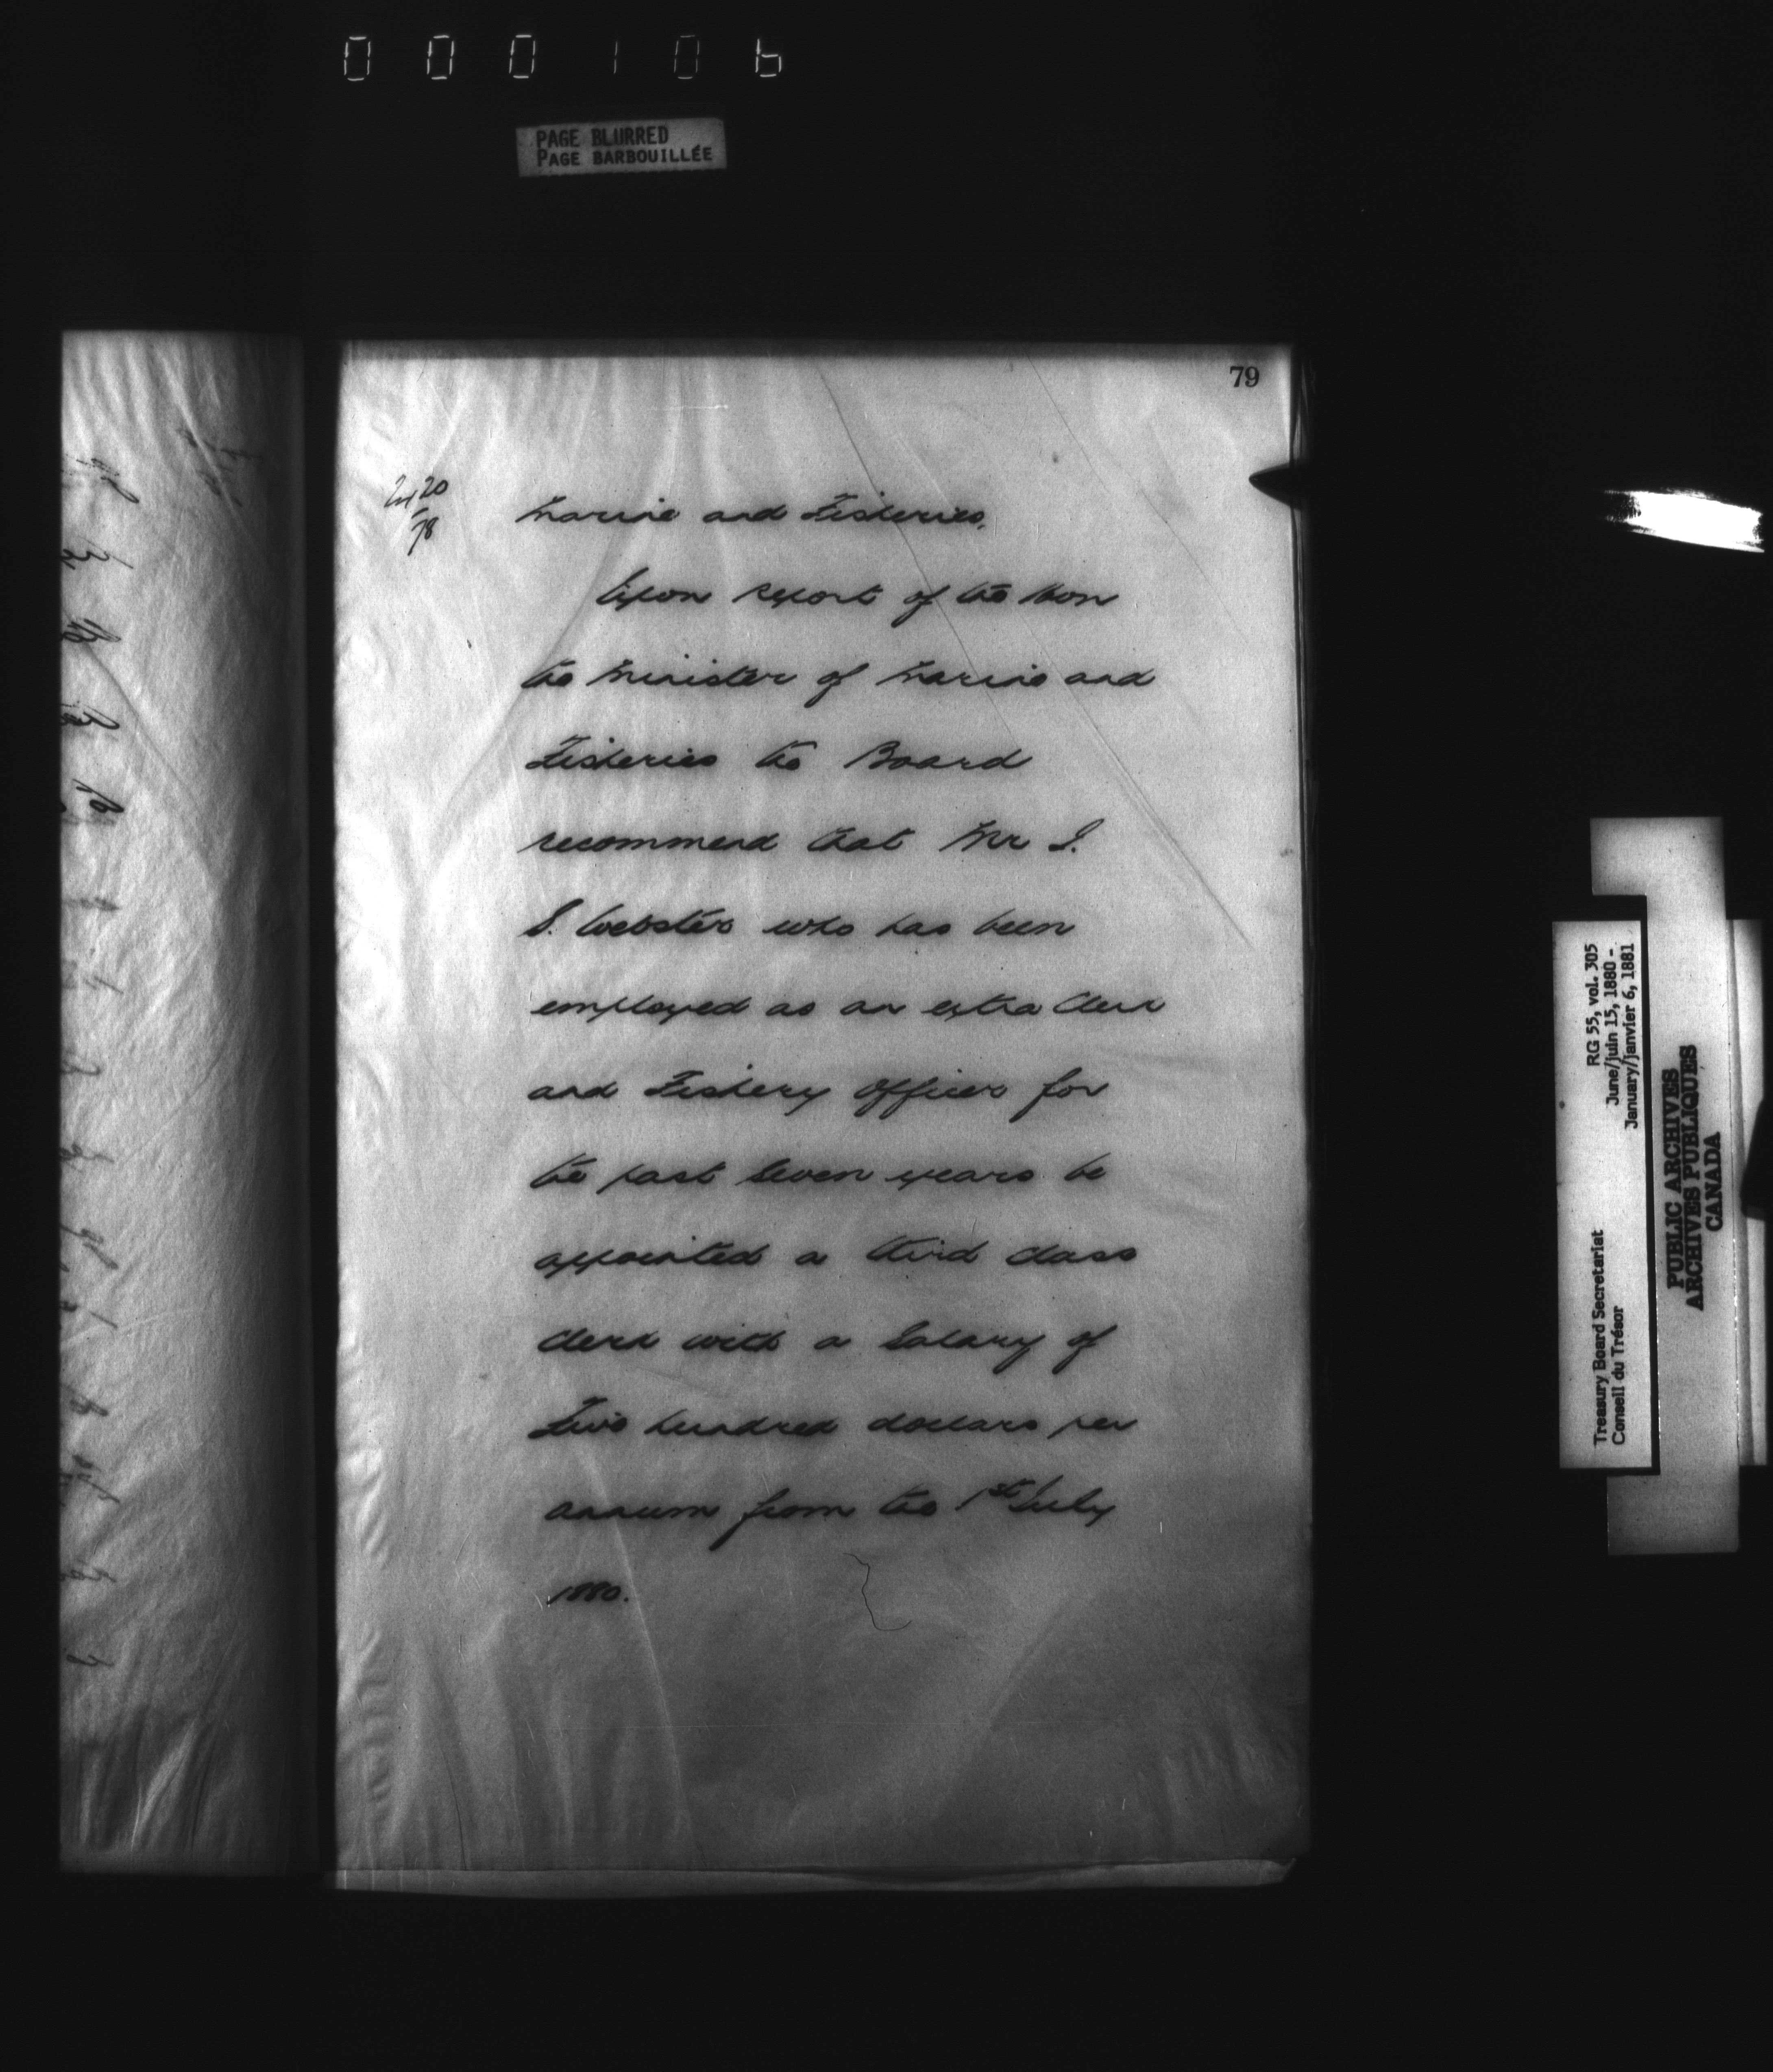 000106
PAGE BLURRED
PAGE BARBOUILLÉE
79
20
78
Marine and Fisheries.
Upon report of the Hon
the Minister of Marine and
Fisheries the Board
recommend that Mr
S. Webster who has been
employed as an extra Clerk
and Fishery Officer for
the past Seven years be
appointed a third class
Clerk with a Salary of
hundred dollars per
annum from the 1st July
1880.
RG 55, vol. 305
June/juin 15, 1880 -
January/janvier 6, 1881
Treasury Board Secretariat
Conseil du Trésor
PUBLIC ARCHIVES
ARCHIVES PUBLIQUES
CANADA